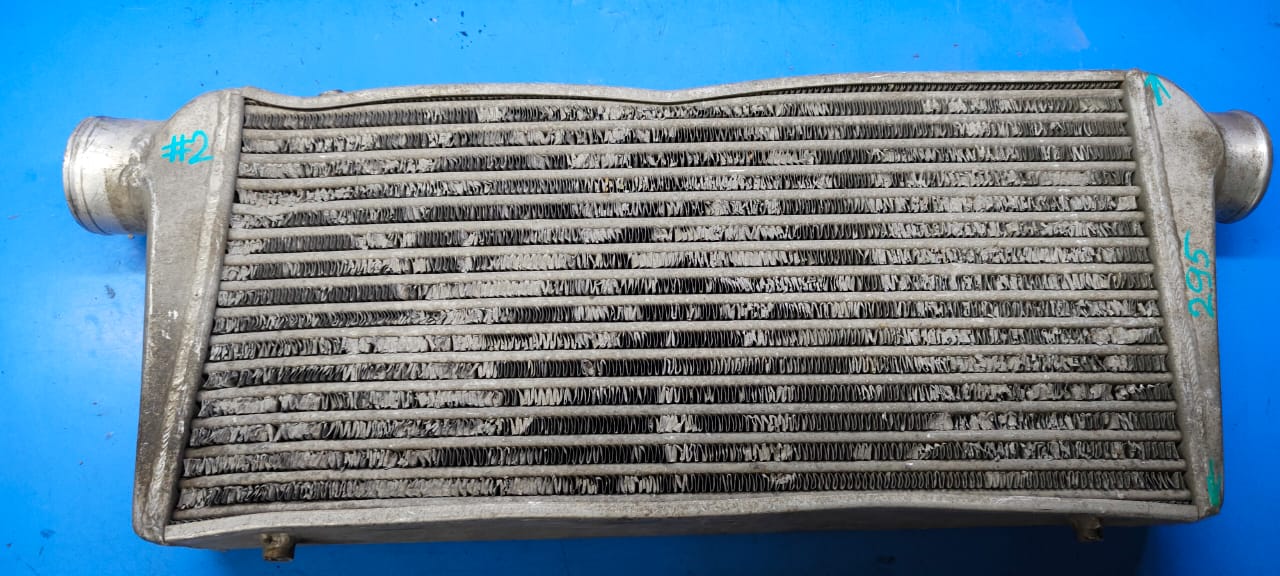 #2
295